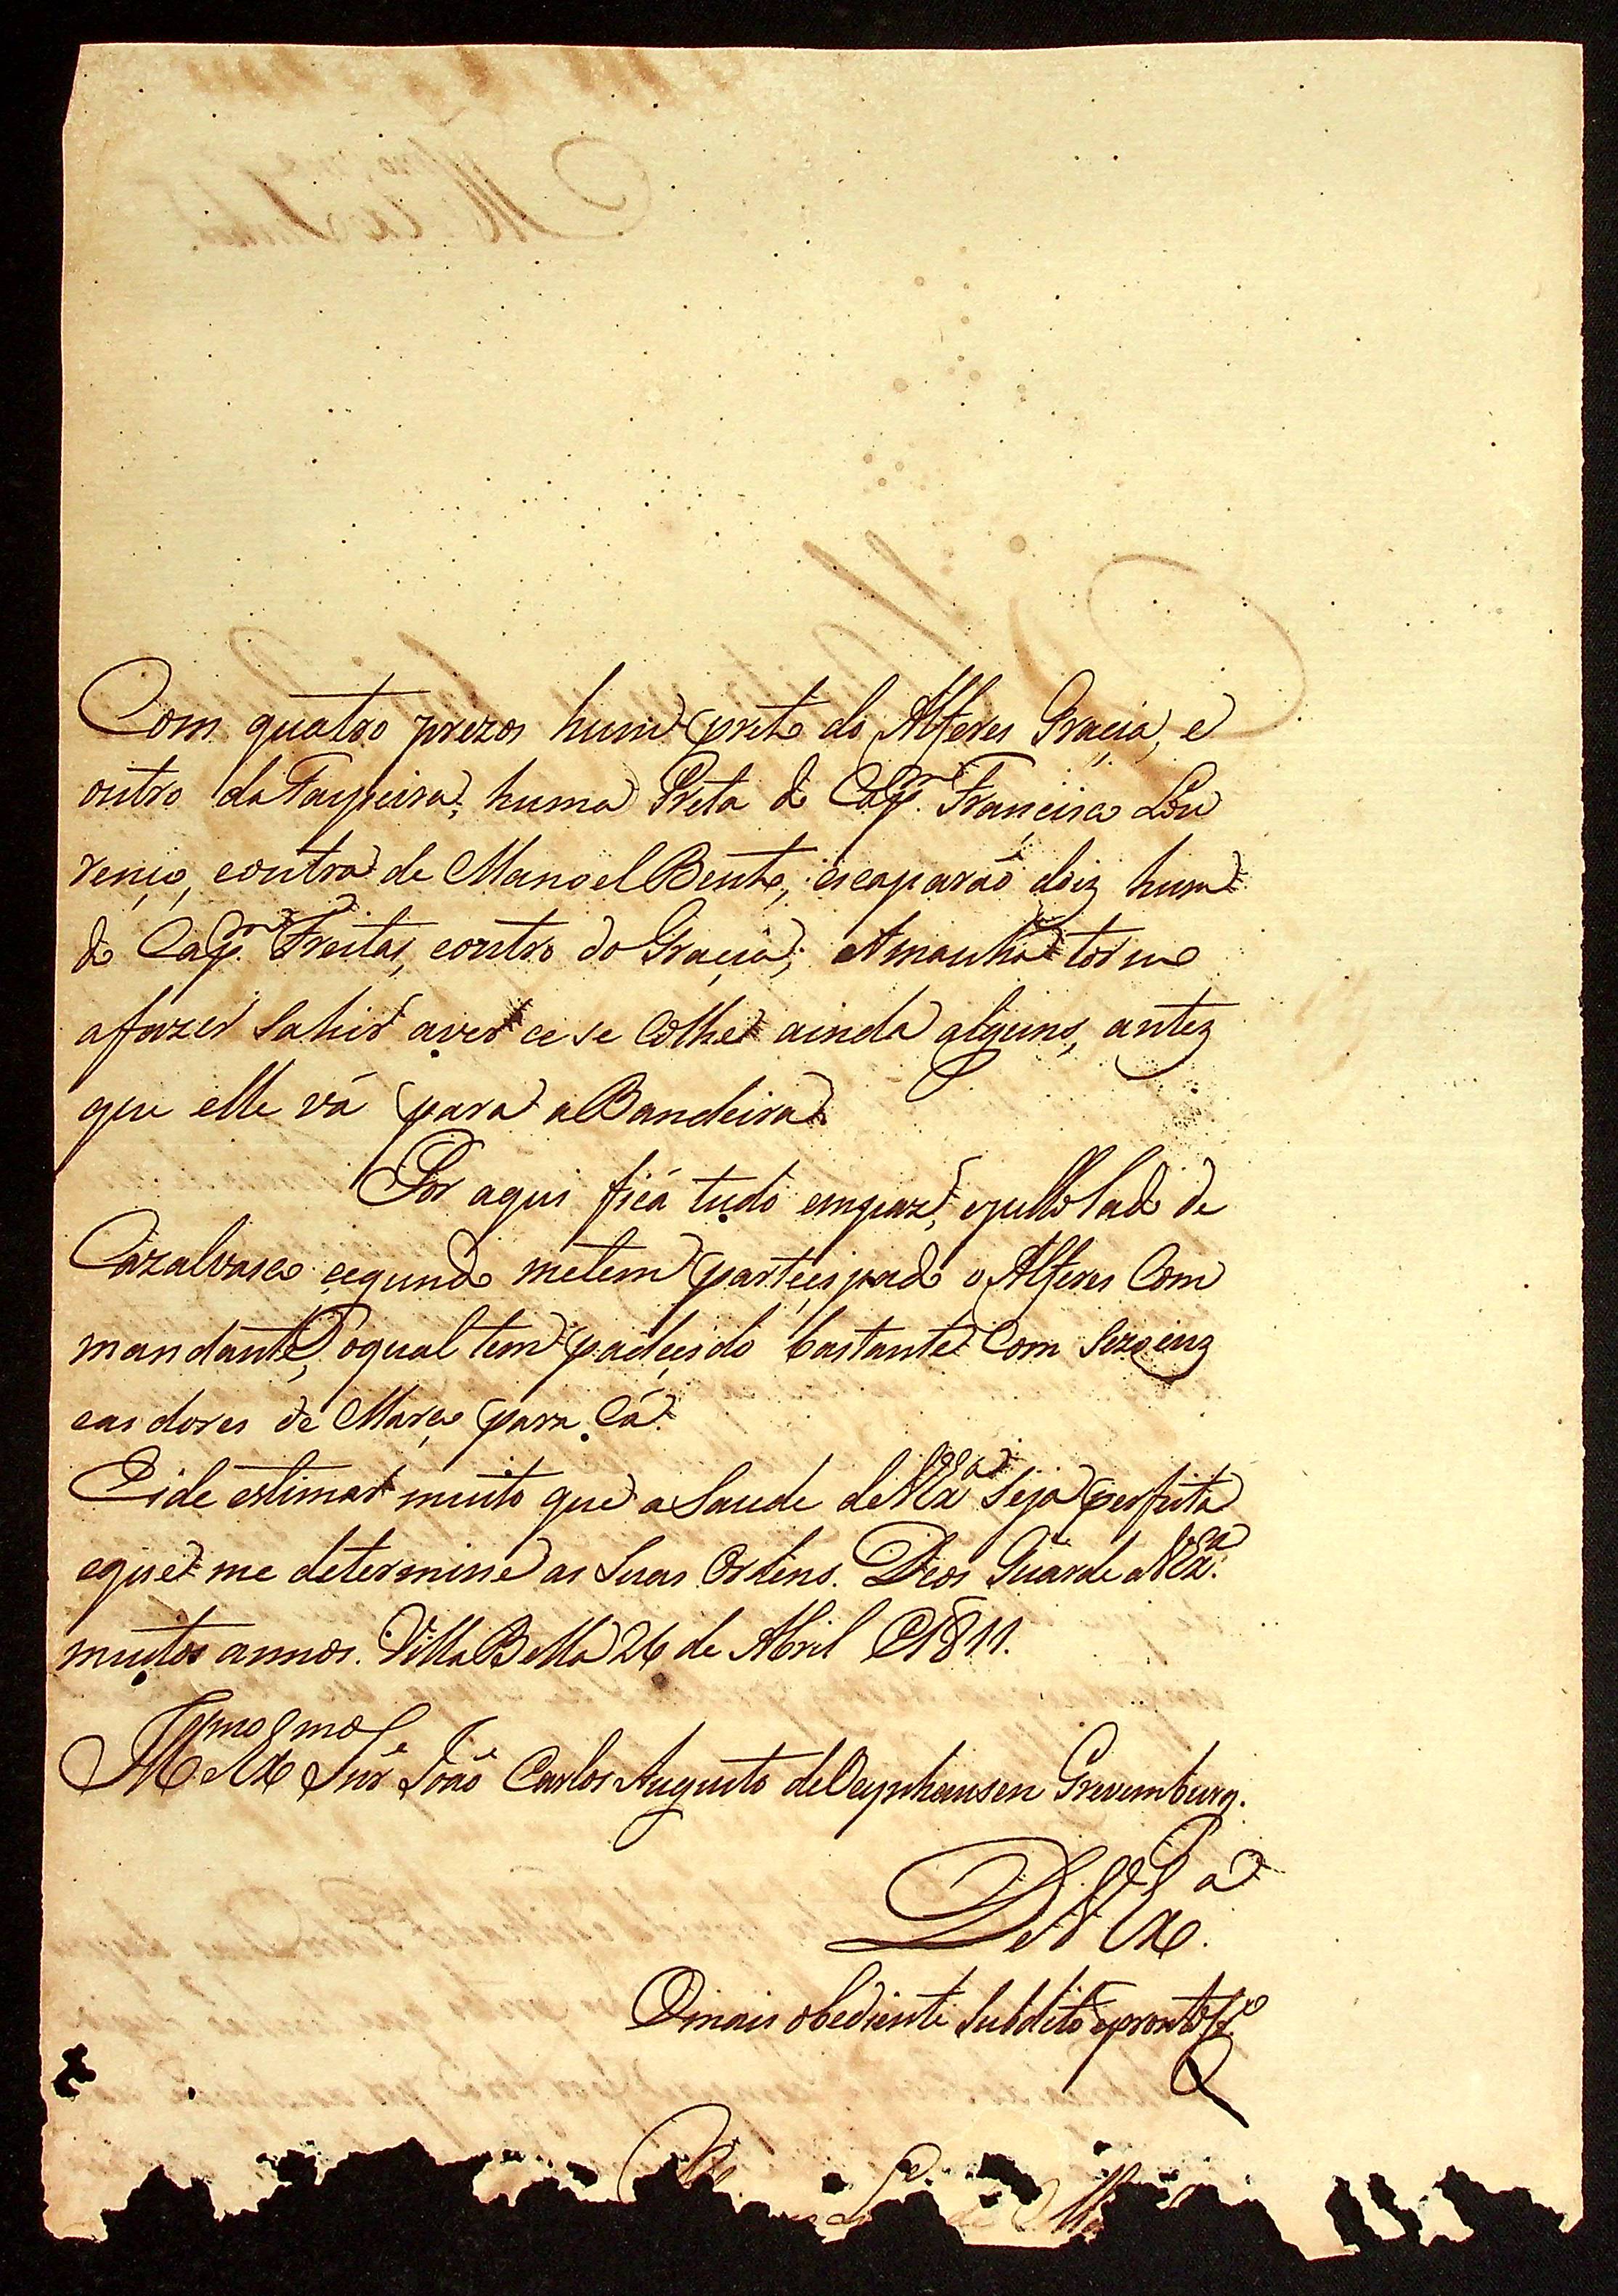 Com quatro prezos hum preto do Alferes Gracia, e
outro da Taypeira, huma Preta do Capm. Francisco Lou
renço, eoutra de Manoel Bento; escaparaõ doiz hum
do Capm. Freitas, eoutro do Gracia; Amanhã torno
afazer Sahir aver ce se Colhe ainda alguns, antez
que elle vá para aBandeira.
Por aqui ficá tudo empaz, epello lado de
Cazalvasco cegundo metem partecipado o Alferes Com
mandante, oqual tem padecido bastante Com Sezoinz
eas dores de Março para Cá.
Eide estimar muito que aSaude deVExa Seja perfeita
eque me determine as Suas Ordens. Deos Guarde aVExa.
muitos annos. Villa Bella 26 de Abril de 1811.
Illmo eExmo Snr João Carlos Augusto deOeynhausen Grevemburg.
DeVExa.
Omais obediente Subdito eprontо